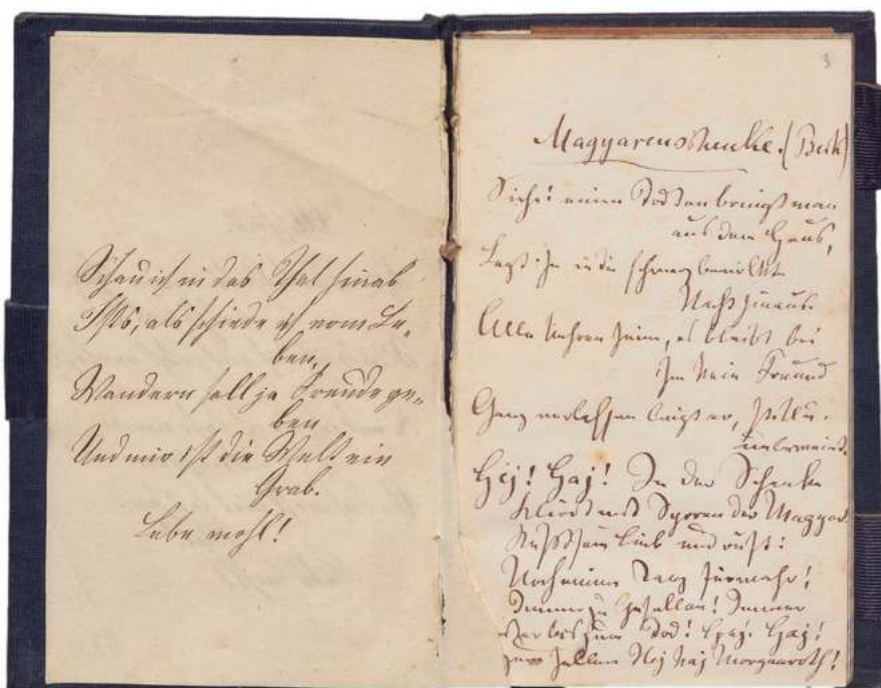 Schau ich in das Thal hinab
Ists, als schiede ich vom Le-
ben,
Wandern soll ja Freude ge-
ben
Und mir ist die Welt ein
Grab.
Lebe wohl!
3
Magyarenschenke. (Beck)
Siehe! einen Todten bringt man
aus dem Haus,
Legt ihn in die schwarz bewölkte
Nacht hinaus.
Alle kehren heim, es bleibt bei
ihm kein Freund
Ganz verlassen liegt er, still u.
unbeweint.
Hej! Haj! In der Schenke
klirrt mit Sporen der Magyar
Küßt sein Lieb und ruft:
Noch einen Tanz
Immer zu Gesellen! Immer
bis zum Tod! Hej! Haj!
zum hellen Morgenroth!